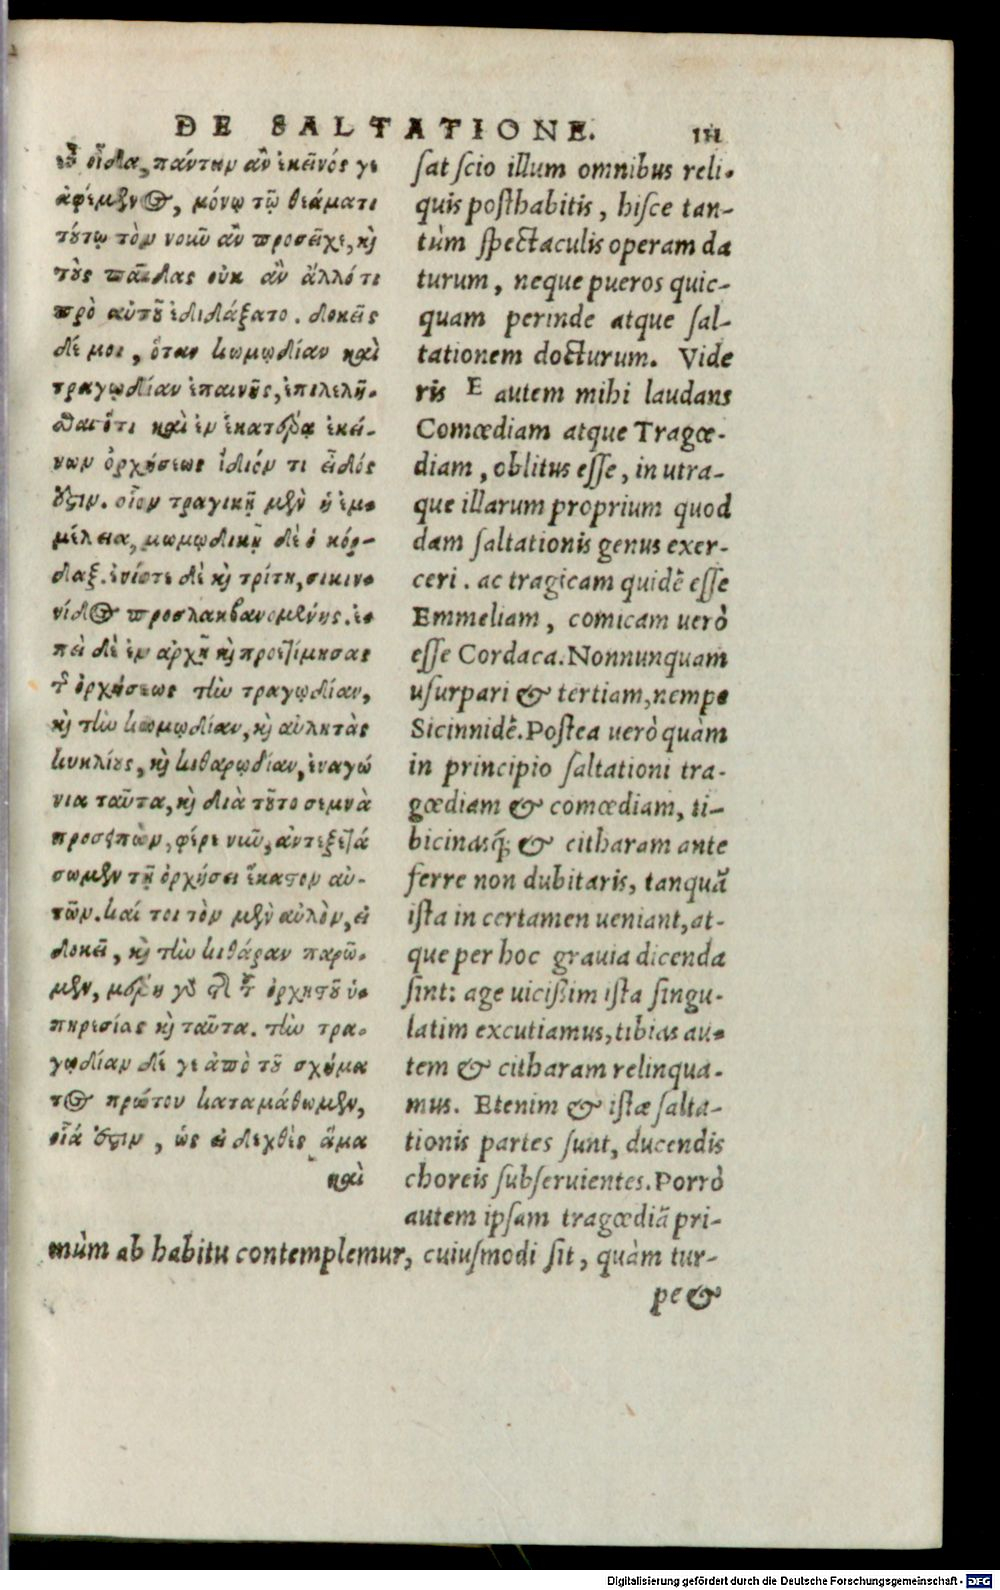 DE SALTATIONE. 111
εὖ οἶδα, πάντων ἂν ἐκεῖνός γε
ἀφέμενος, μόνῳ τῷ θεάματι
τούτῳ τὸν νοῦν ἂν προσεῖχε, καὶ
τοὺς παῖδας οὐκ ἂν ἄλλό τι
πρὸ αὐτοῦ ἐδιδάξατο. δοκεῖς
δέ μοι, ὅταν κωμῳδίαν καὶ
τραγῳδίαν ἐπαινῇς, ἐπιλελῆ-
σθαι ὅτι καὶ ἐν ἑκατέρᾳ ἐκεί-
νων ὀρχήσεως ἴδιόν τι εἶδός
ἐστιν. οἷον τραγικῇ μὲν ἡ ἐμ-
μέλεια, κωμῳδικῇ δὲ ὁ κόρ-
δαξ. ἐνίοτε δὲ καὶ τρίτη, σικιν-
νίδος προσλαμβανομένης. ἐ-
πεὶ δὲ ἐν ἀρχῇ καὶ προετίμησας
τῆς ὀρχήσεως τὴν τραγῳδίαν,
καὶ τὴν κωμῳδίαν, καὶ αὐλητὰς
κυκλίους, καὶ κιθαρῳδίαν, ἐναγώ
νια ταῦτα, καὶ διὰ τοῦτο σεμνὰ
προσειπὼν, φέρε νῦν, ἀντεξετά
σωμεν τῇ ὀρχήσει ἕκαστον αὐ-
τῶν. καί τοι τὸν μὲν αὐλὸν, εἰ
δοκεῖ, καὶ τὴν κιθάραν παρῶ-
μεν, μέρη γὰρ τῆς τοῦ ὀρχηστοῦ ὑ-
πηρεσίας καὶ ταῦτα. τὴν τρα-
γῳδίαν δέ γε ἀπὸ τοῦ σχήμα
τος πρώτου καταμάθωμεν,
οἵα ἐστιν, ὡς εἰδεχθὲς ἅμα
καὶ
sat scio illum omnibus reli-
quis posthabitis, hisce tan-
tùm spectaculis operam da
turum, neque pueros quic-
quam perinde atque sal-
tationem docturum. Vide
ris E autem mihi laudans
Comœdiam atque Tragœ-
diam, oblitus esse, in utra-
que illarum proprium quod
dam saltationis genus exer-
ceri. ac tragicam quidẽ esse
Emmeliam, comicam uerò
esse Cordaca. Nonnunquam
usurpari & tertiam, nempe
Sicinnidẽ. Postea uerò quàm
in principio saltationi tra-
gœdiam & comœdiam, ti-
bicinasq́; & citharam ante
ferre non dubitaris, tanquã
ista in certamen ueniant, at-
que per hoc grauia dicenda
sint: age uicißim ista singu-
latim excutiamus, tibias au-
tem & citharam relinqua-
mus. Etenim & istæ salta-
tionis partes sunt, ducendis
choreis subseruientes. Porrò
autem ipsam tragœdiã pri-
mùm ab habitu contemplemur, cuiusmodi sit, quàm tur-
pe &
Digitalisierung gefördert durch die Deutsche Forschungsgemeinschaft - DFG